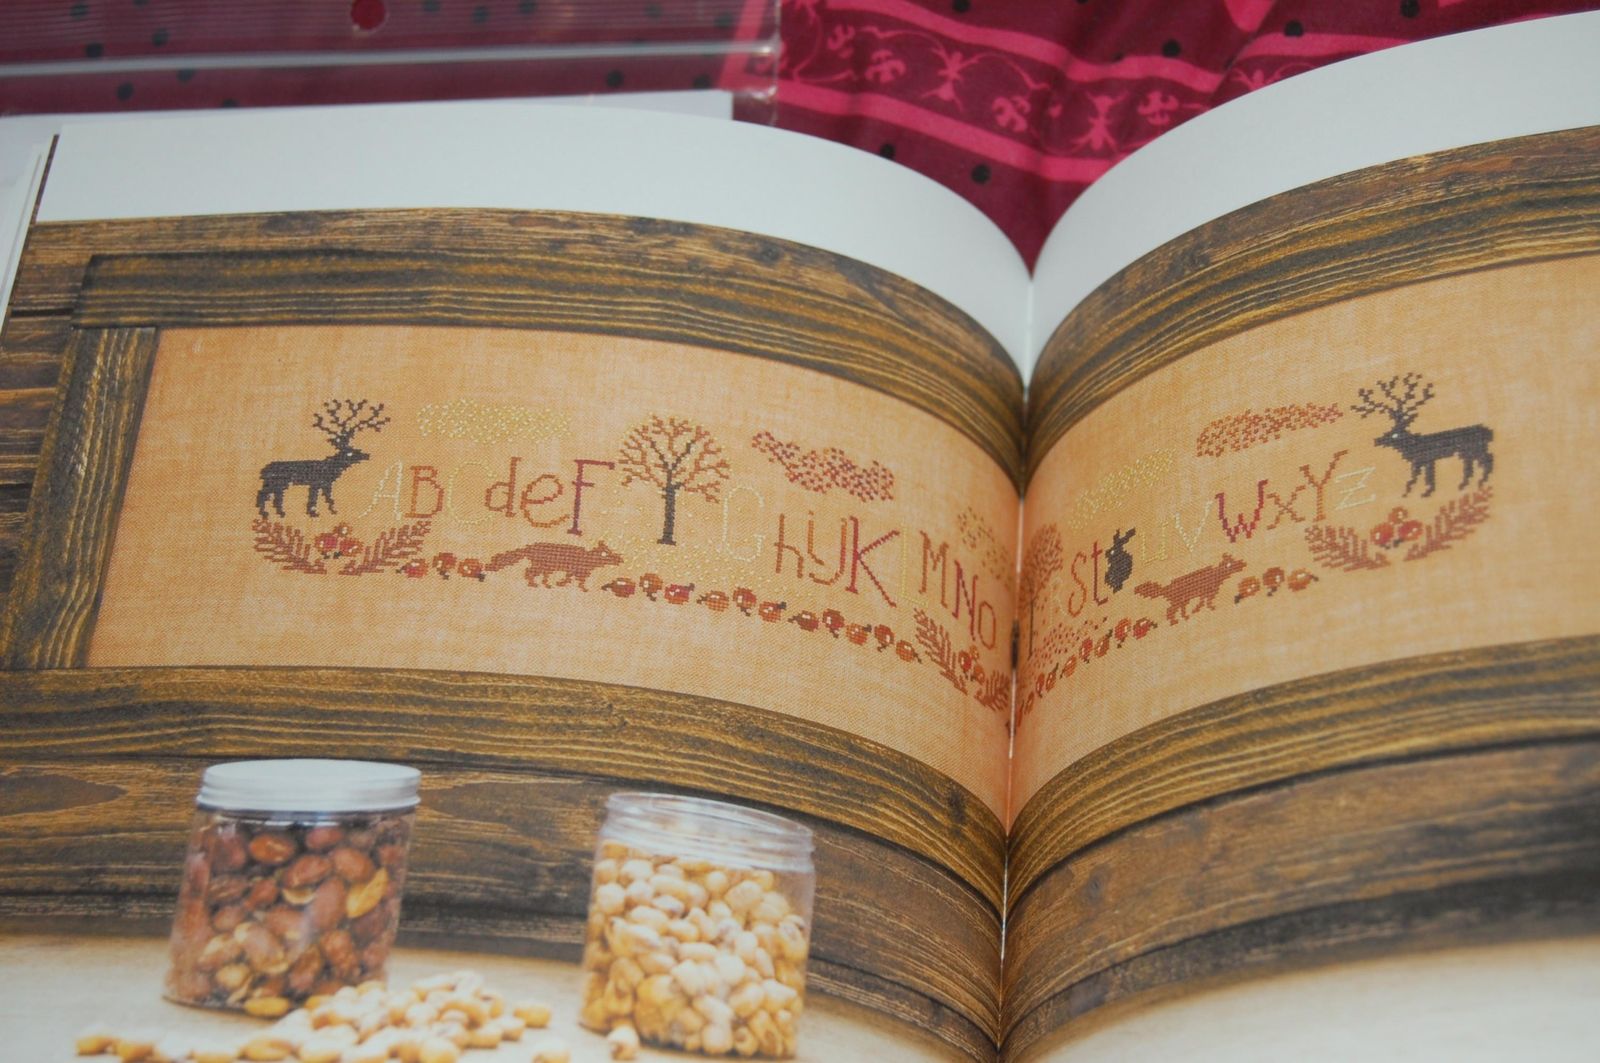 ABCdeF G hijKLMNo St uvWxYz